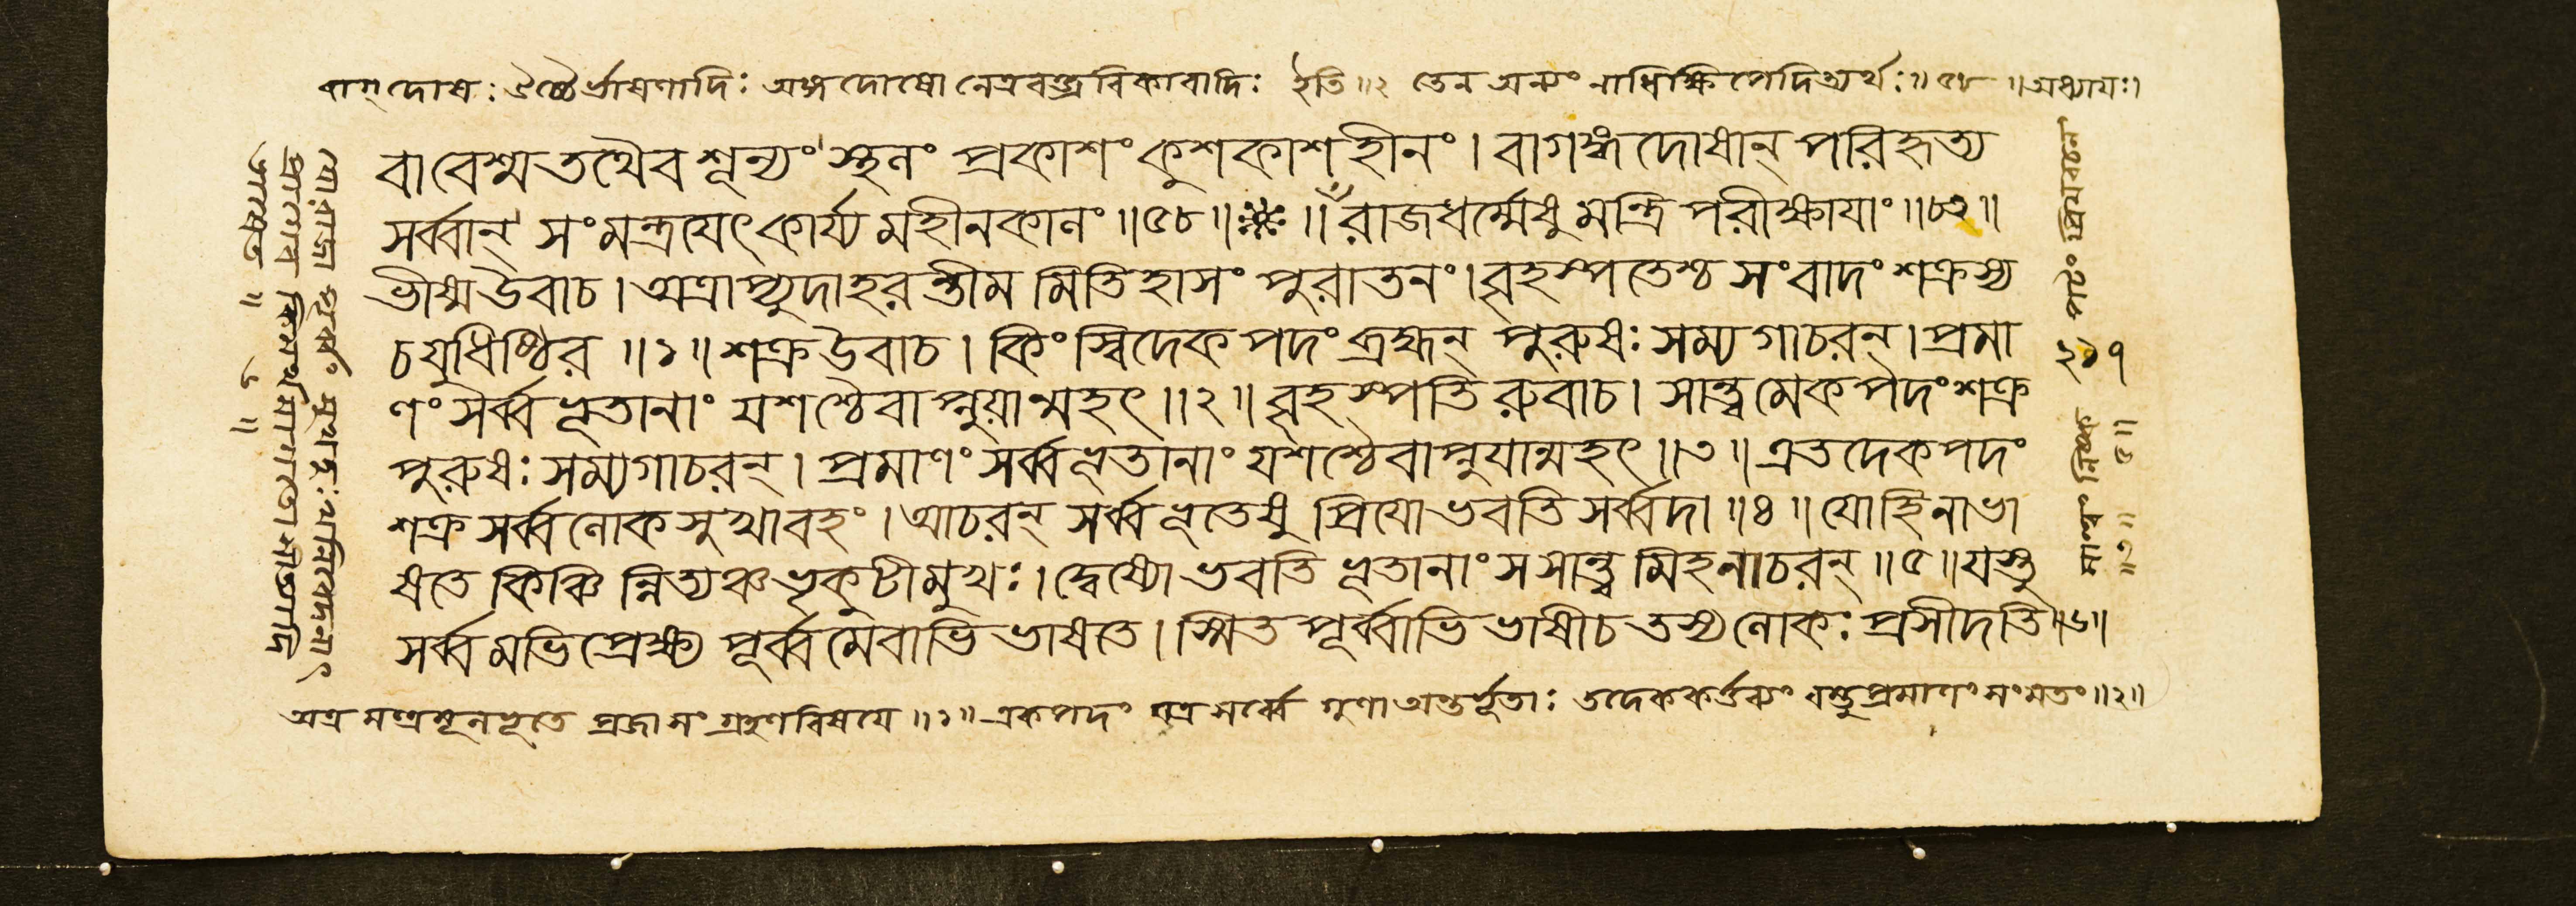 বাগ্ দোষঃ ঔচ্চৈর্ভাষণাদিঃ অঙ্গদোষো নেত্রবক্ত্রবিকারাদিঃ ইতি॥২ তেন অন্যং নাধিক্ষিপেদিত্যর্থঃ॥৫৮ ॥অধ্যায়ঃ।
বাবেশ্মতথৈবশূন্যং স্থলং প্রকাশং কুশকাশহীনং। বাগঙ্গদোষান্ পরিহৃত্য
সর্ব্বান্ সংমন্ত্রযেৎকার্য্যমহীনকালং॥৫৮॥ ॥ রাজধর্ম্মেষু মন্ত্রিপরীক্ষাযাং॥৮৩॥
ভীষ্মউবাচ। অত্রাপ্যুদাহরন্তীমমিতিহাসং পুরাতনং। বৃহস্পতেশ্চসংবাদং শক্রস্য
চযুধিষ্ঠির॥১॥শক্রউবাচ। কিংস্বিদেকপদংব্রহ্মন্ পুরুষঃসম্যগাচরন্। প্রমা
ণংসর্ব্বভূতানাং যশশ্চৈবাপ্নুয়ান্মহৎ॥২॥ বৃহস্পতিরুবাচ। সান্ত্বমেকপদংশক্র
পুরুষঃসম্যগাচরন্। প্রমাণংসর্ব্বভূতানাং যশশ্চৈবাপ্নুযান্মহৎ॥৩॥এতদেকপদং
শক্রসর্ব্বলোকসুখাবহং। আচরন্ সর্ব্বভূতেষু প্রিযোভবতিসর্ব্বদা॥৪॥যোহিনাভা
ষতে কিঞ্চিন্নিত্যঞ্চভৃকুটীমুখঃ। দ্বেষ্যোভবতি ভূতানাংসসান্ত্বমিহনাচরন্॥৫॥যস্তু
সর্ব্বমভিপ্রেক্ষ্য পূর্ব্বমেবাভিভাষতে। স্মিতপূর্ব্বাভিভাষীচতস্যলোকঃপ্রসীদতি॥৬॥
অত্র মন্ত্রমূলভূতে প্রজাসংগ্রহণবিষযে॥১॥ একপদং যত্র সর্ব্বে গুণা অন্তর্ভূতাঃ তদেককর্ত্তব্যং বস্তুপ্রমাণং সংমতং॥২॥
২১৭